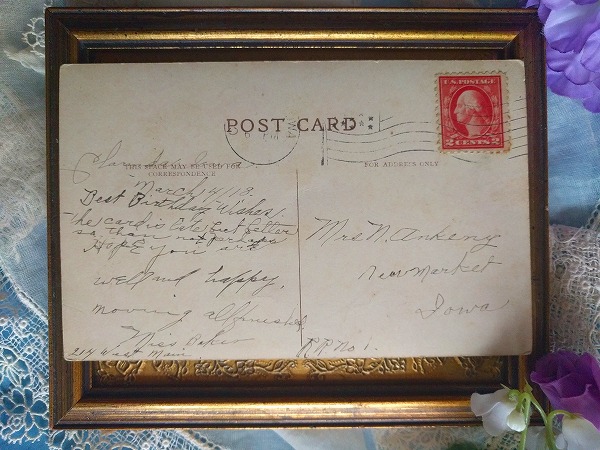 U.S. POSTAGE
2 CENTS 2
POST CARD
THIS SPACE MAY BE USED FOR
CORRESPONDENCE
FOR ADDRESS ONLY
March 4/18.
Best Birthday Wishes.
The card is late but better
so than not perhaps
Hope you are
well and happy.
moving all finished
Miss Baker
214 West Main
Mrs. N. Ankeny
New Market
Iowa
R.R. No 1.